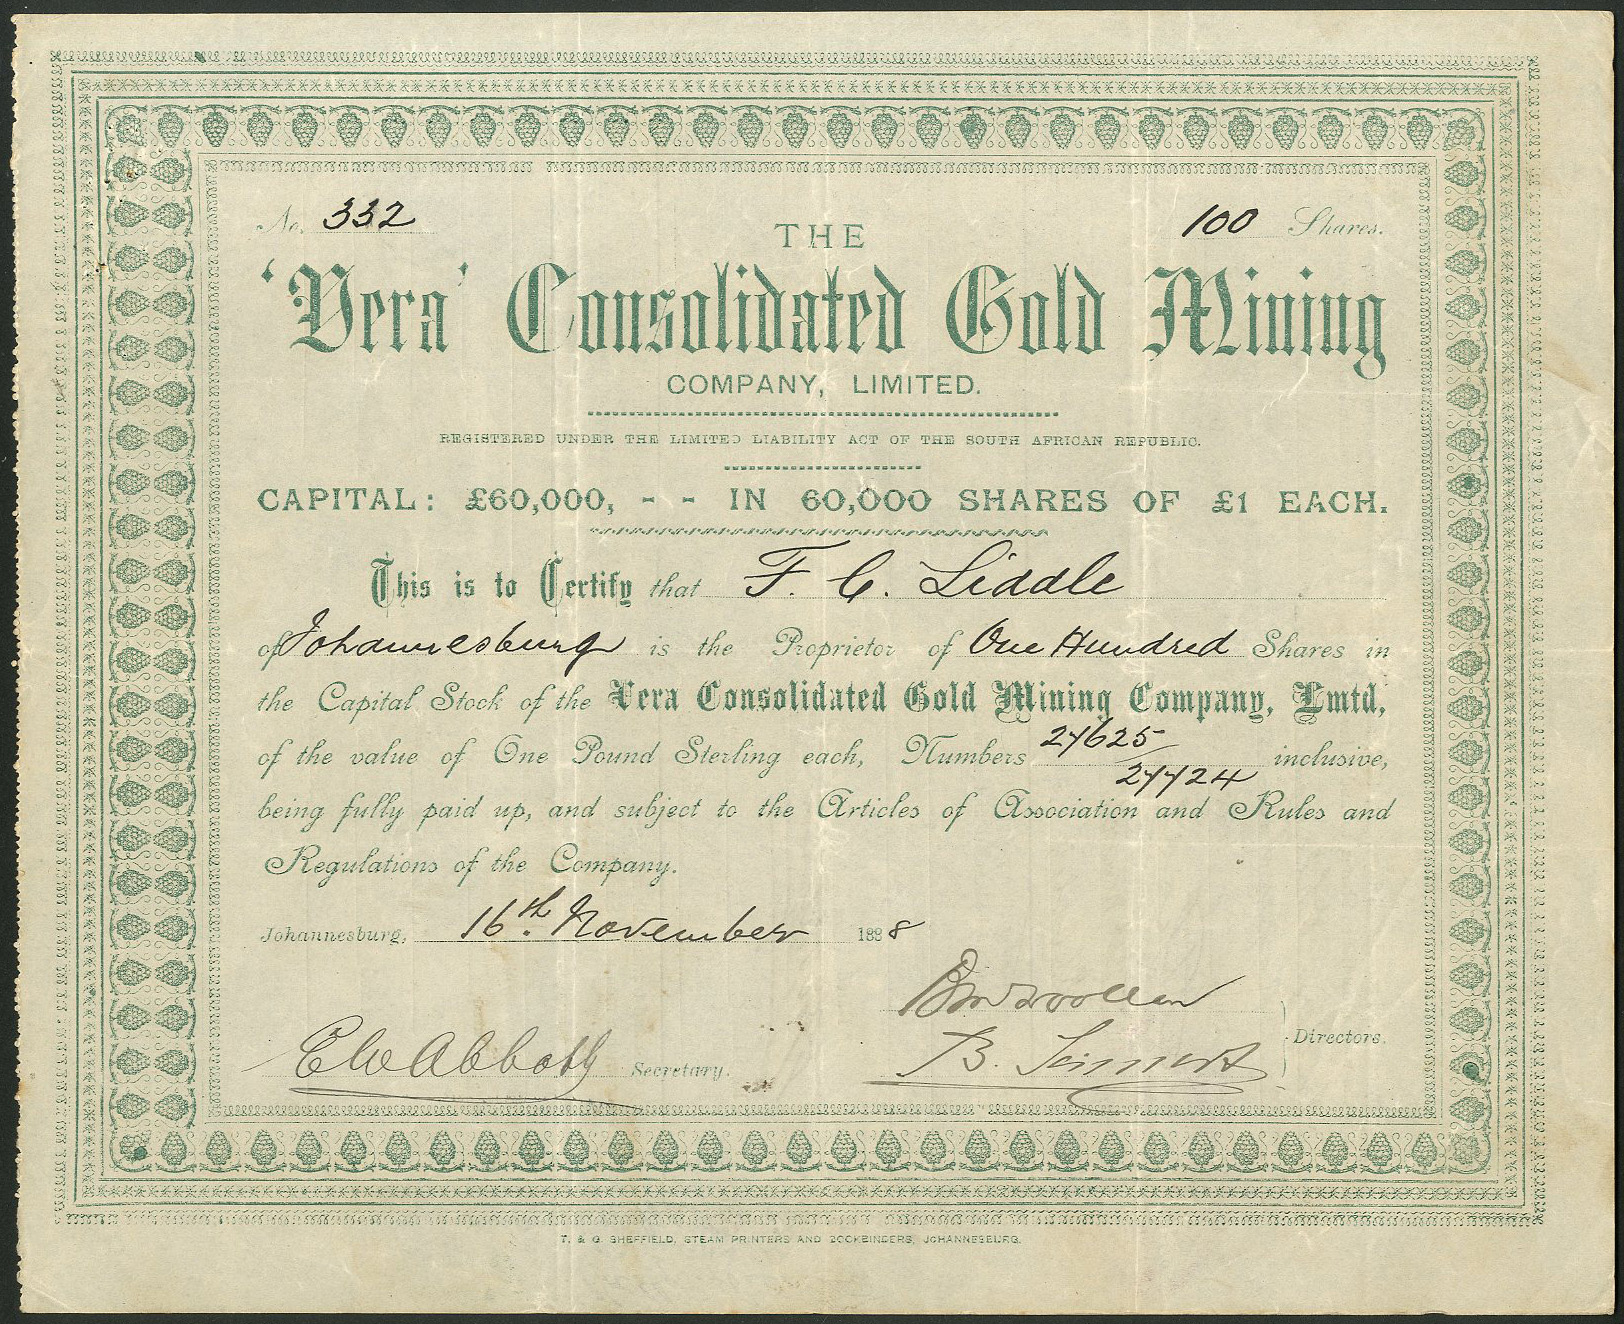 No. 332
100 Shares.
THE
'Vera' Consolidated Gold Mining
COMPANY, LIMITED.
REGISTERED UNDER THE LIMITED LIABILITY ACT OF THE SOUTH AFRICAN REPUBLIC.
CAPITAL: £60,000, - - IN 60,000 SHARES OF £1 EACH.
This is to Certify that F. C. Liddle
of Johannesburg is the Proprietor of One Hundred Shares in
the Capital Stock of the Vera Consolidated Gold Mining Company, Lmtd,
of the value of One Pound Sterling each, Numbers 27625/27724 inclusive,
being fully paid up, and subject to the Articles of Association and Rules and
Regulations of the Company.
Johannesburg, 16th November 1888
Directors.
Secretary.
T. & G. SHEFFIELD, STEAM PRINTERS AND BOOKBINDERS, JOHANNESBURG.